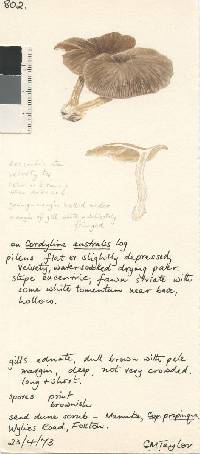 802.
eccentric
velvety
younger margin rolled under
margin of gill white, delicately
fringed
on Cordyline australis log
pileus flat or slightly depressed,
velvety, watersoaked drying paler.
stipe eccentric, fawn striate with
some white tomentum near base,
hollow.
gills adnate, dull brown with pale
margin, deep, not very crowded.
long & short.
spores print
brownish
sand dune scrub - Manuka, Cop. propinqua,
Wylies Road, Foxton.
23/4/73
GM Taylor